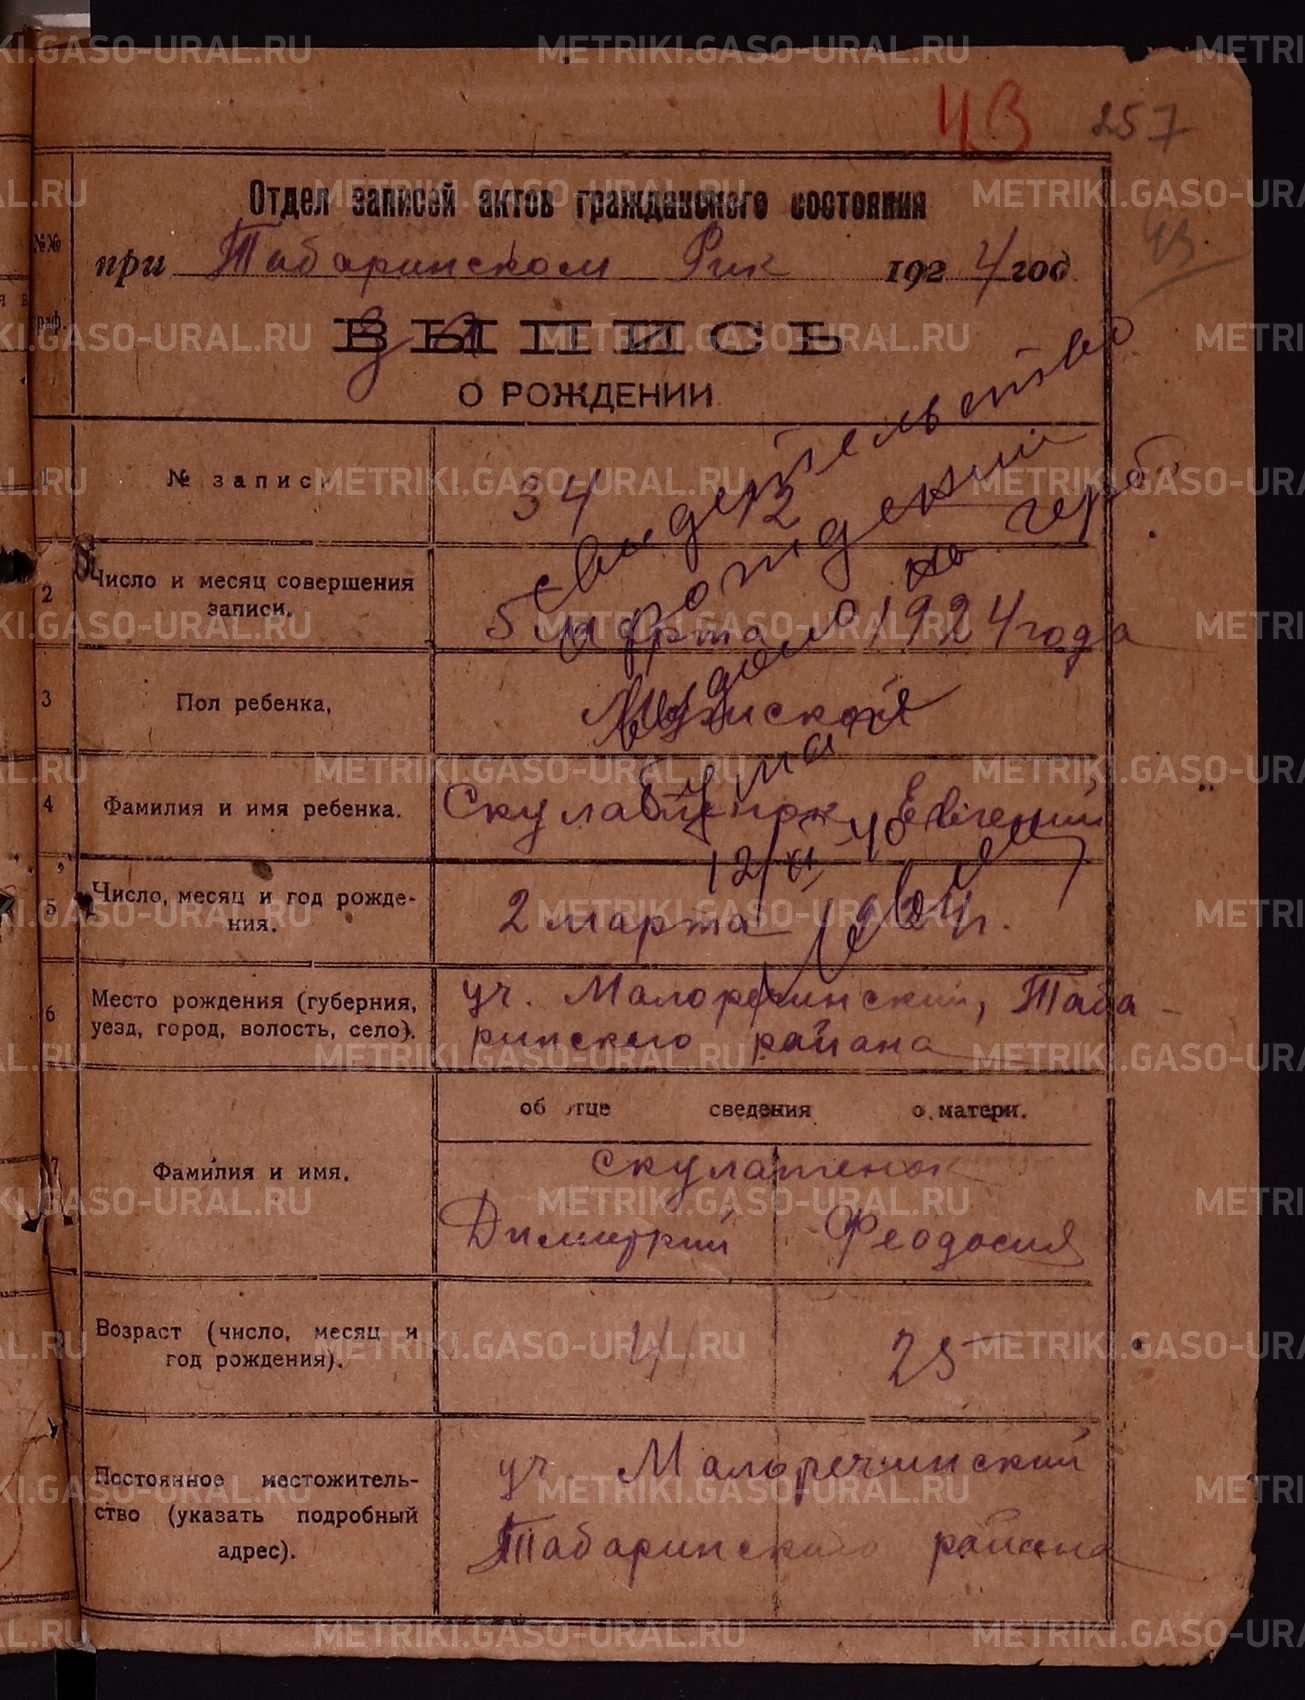 43 257
Отдел записей актов гражданского состояния
№№ граф.
при Табаринском Рик 1924 год
43.
ВЫПИСЬ
О РОЖДЕНИИ
1 № записи 34
2 Число и месяц совершения записи. 5 марта 1924 года
3 Пол ребенка, Мужской
4 Фамилия и имя ребенка. Скулатенок Евгений
5 Число, месяц и год рождения. 2 марта 1924 г.
6 Место рождения (губерния, уезд, город, волость, село). уч. Малореченский, Таба-
ринского района
об отце сведения о матери.
7 Фамилия и имя. Скулатенок
Димитрий Феодосия
Возраст (число, месяц и год рождения). 41 25
Постоянное местожительство (указать подробный адрес). уч. Малореченский
Табаринского района
Свидетельство
о рождении
выдано на герб
бумаге
12/XI-40
METRIKI.GASO-URAL.RU